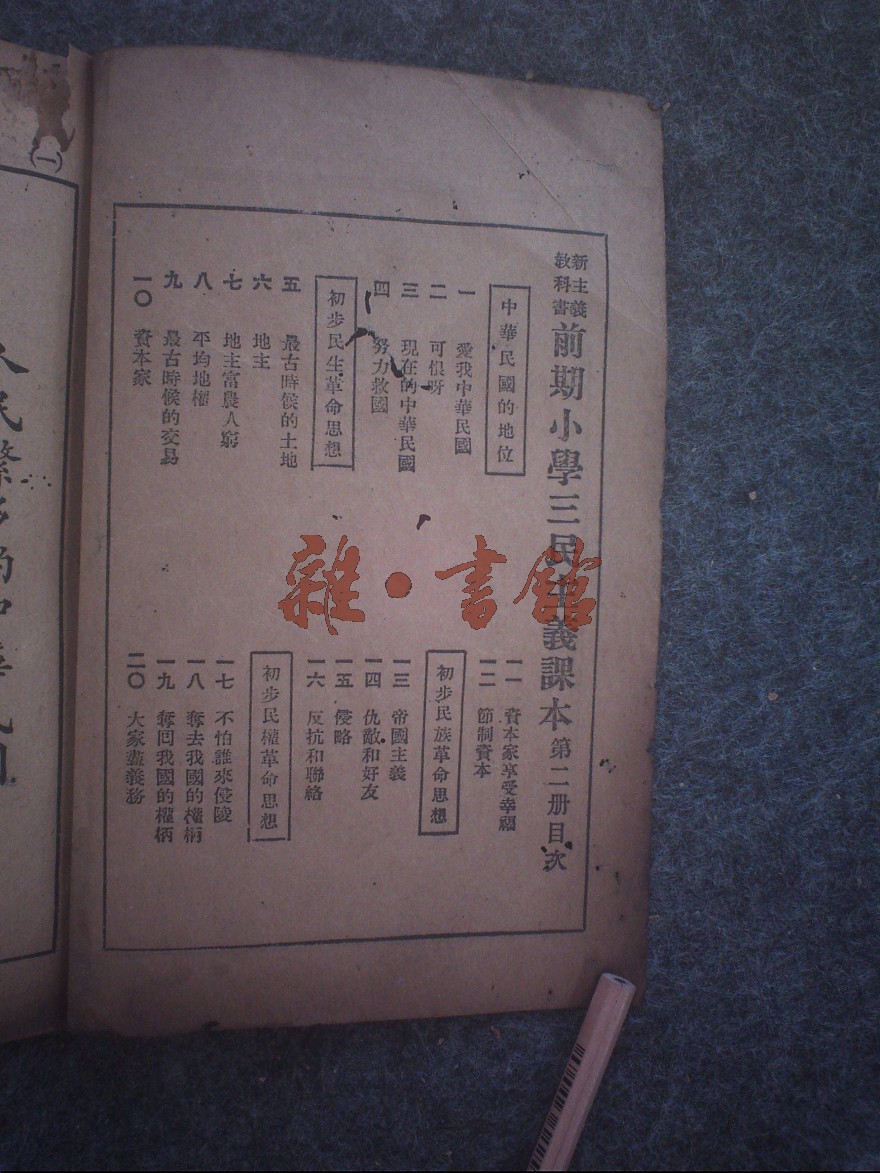 新主義教科書 前期小學三民主義課本第二册目次
中華民國的地位
一 愛我中華民國
二 可恨呀
三 現在的中華民國
四 努力救國
初步民生革命思想
五 最古時候的土地
六 地主
七 地主富農人窮
八 平均地權
九 最古時候的交易
一〇 資本家
一一 資本家享受幸福
一二 節制資本
初步民族革命思想
一三 帝國主義
一四 仇敵和好友
一五 侵略
一六 反抗和聯絡
初步民權革命思想
一七 不怕誰來侵陵
一八 奪去我國的權柄
一九 奪囘我國的權柄
二〇 大家盡義務
(一)
雜·書館